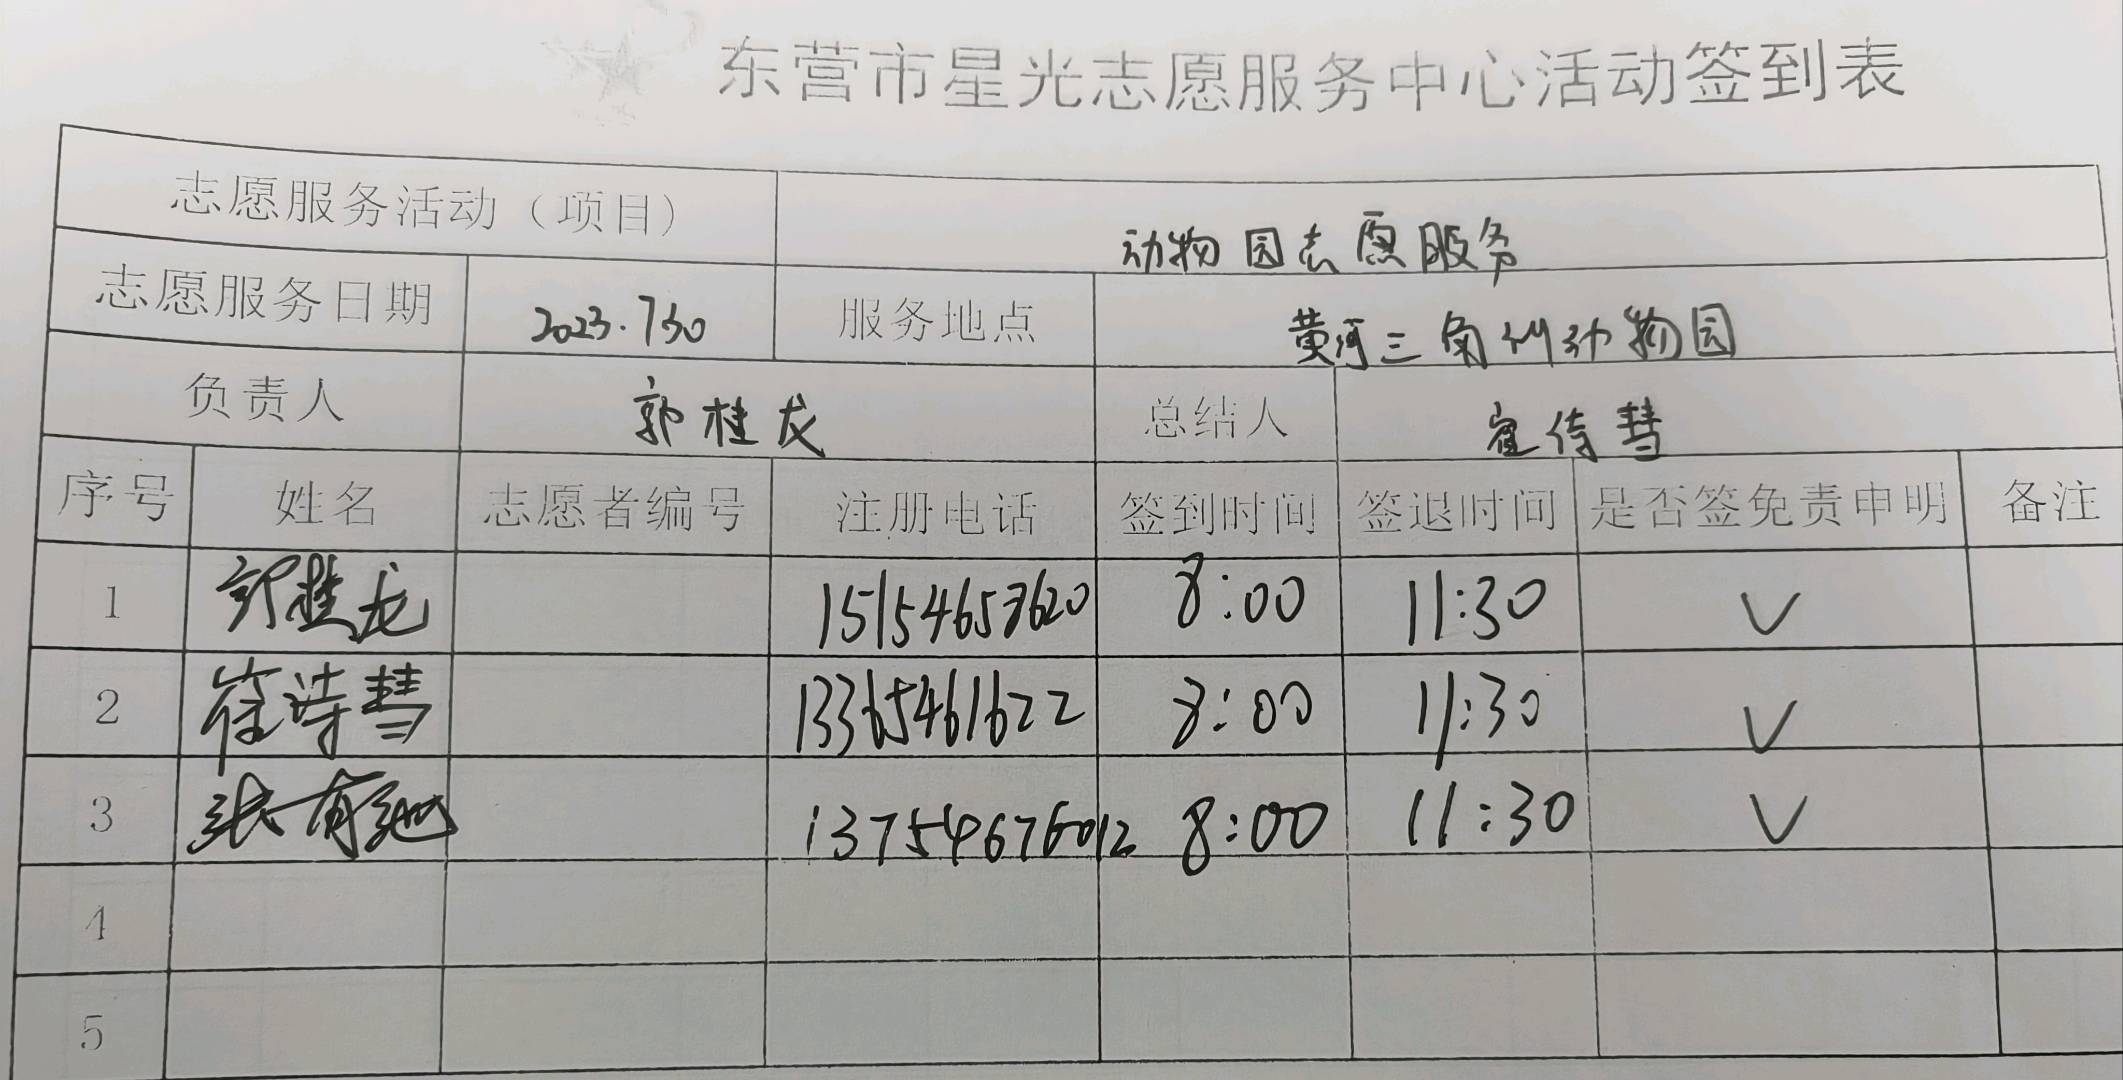 东营市星光志愿服务中心活动签到表
志愿服务活动（项目） 动物园志愿服务
志愿服务日期 2023.730 服务地点 黄河三角洲动物园
负责人 郭桂龙 总结人 崔诗慧
序号 姓名 志愿者编号 注册电话 签到时间 签退时间 是否签免责申明 备注
1 郭桂龙 15154653620 8:00 11:30 √
2 崔诗慧 13365461622 8:00 11:30 √
3 张有 13754676012 8:00 11:30 √
4
5